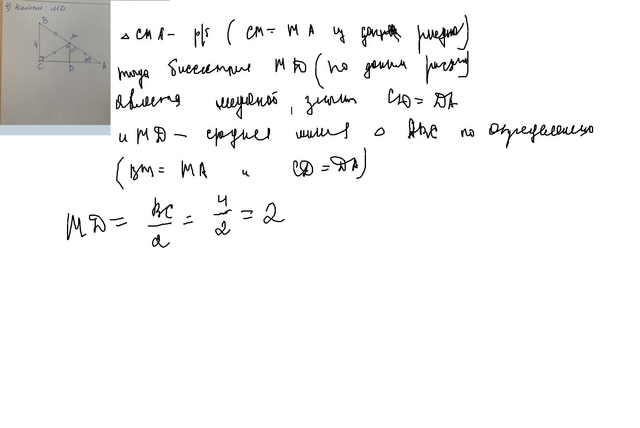 4) Найти: MD
B
M
4
C
D
A
△ CMA – р/б (CM = MA из данн рисунка)
тогда биссектриса MD (по данным рисунка)
является медианой, значит CD = DA
и MD – средняя линия △ ABC по определению
(BM = MA и CD = DA)
MD = BC/2 = 4/2 = 2